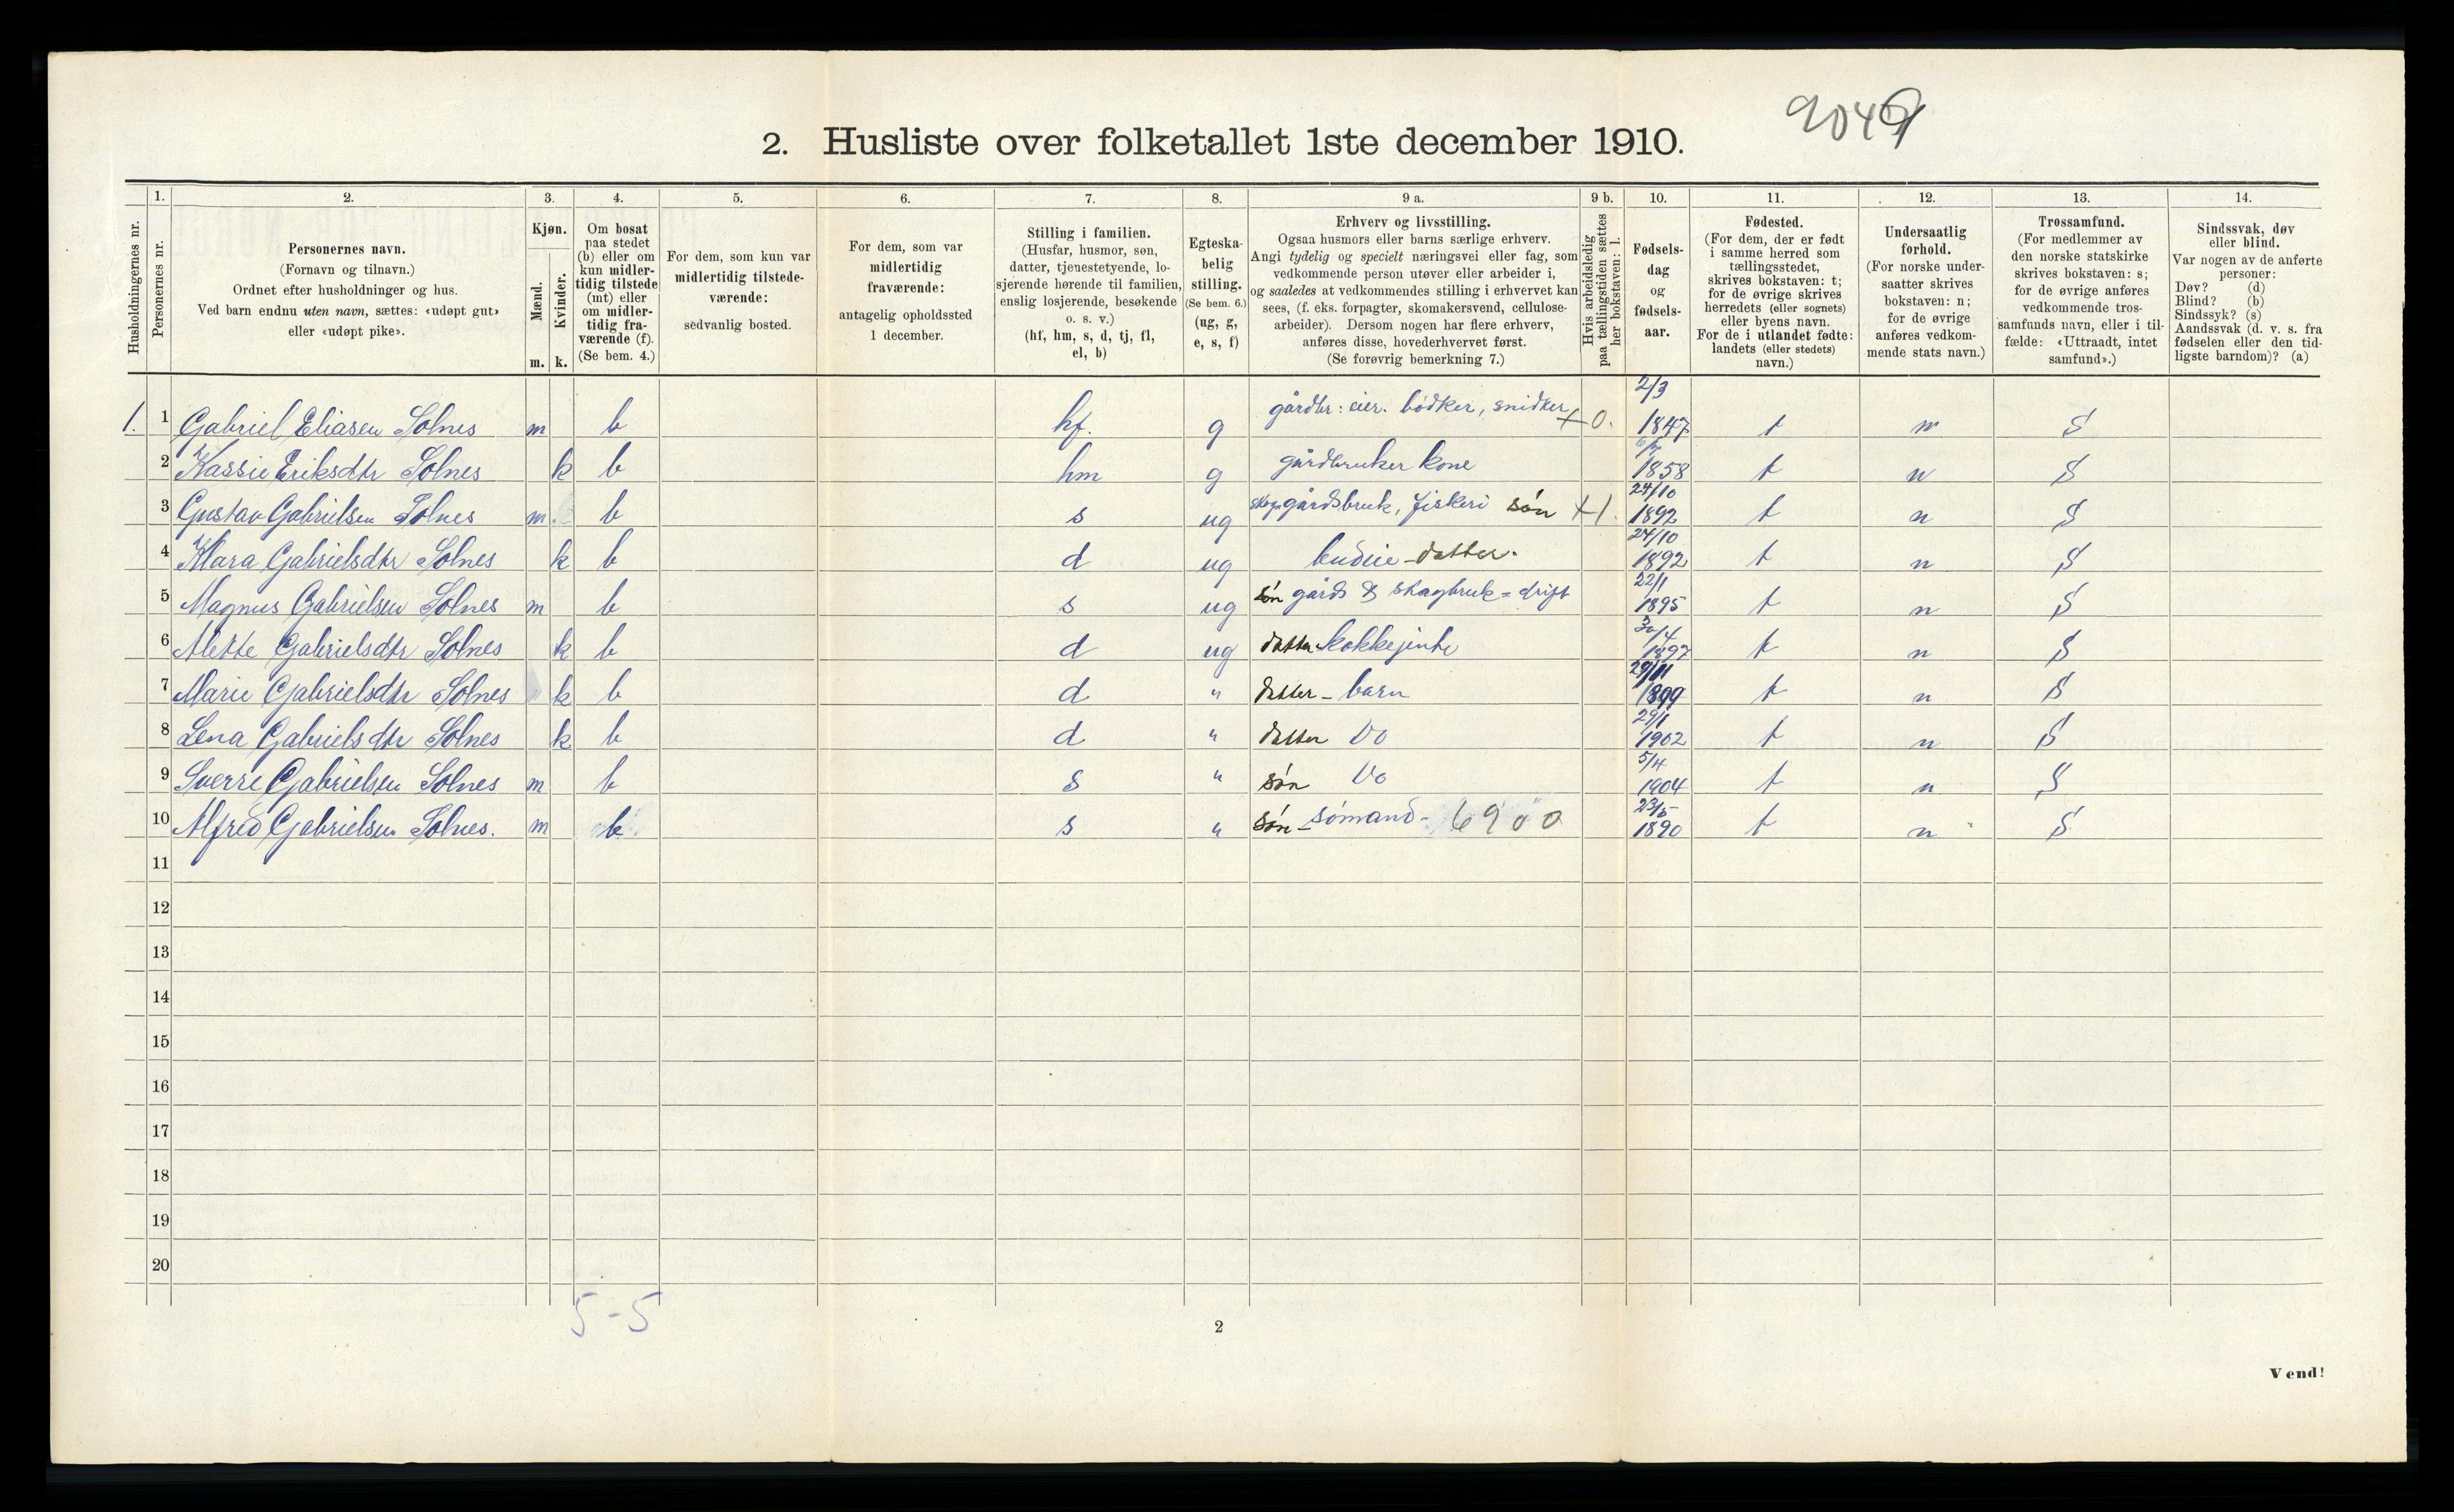 9049
2. Husliste over folketallet 1ste december 1910.
Husholdningernes nr.
1.
Personernes nr.
2.
Personernes navn.
(Fornavn og tilnavn.)
Ordnet efter husholdninger og hus.
Ved barn endnu uten navn, sættes: «udøpt gut»
eller «udøpt pike».
3.
Kjøn.
Mænd.
Kvinder.
m. k.
4.
Om bosat
paa stedet
(b) eller om
kun midler-
tidig tilstede
(mt) eller
om midler-
tidig fra-
værende (f).
(Se bem. 4.)
5.
For dem, som kun var
midlertidig tilstede-
værende:
sedvanlig bosted.
6.
For dem, som var
midlertidig
fraværende:
antagelig opholdssted
1 december.
7.
Stilling i familien.
(Husfar, husmor, søn,
datter, tjenestetyende, lo-
sjerende hørende til familien,
enslig losjerende, besøkende
o. s. v.)
(hf, hm, s, d, tj, fl,
el, b)
8.
Egteska-
belig
stilling.
(Se bem. 6.)
(ug, g,
e, s, f)
9 a.
Erhverv og livsstilling.
Ogsaa husmors eller barns særlige erhverv.
Angi tydelig og specielt næringsvei eller fag, som
vedkommende person utøver eller arbeider i,
og saaledes at vedkommendes stilling i erhvervet kan
sees, (f. eks. forpagter, skomakersvend, cellulose-
arbeider). Dersom nogen har flere erhverv,
anføres disse, hovederhvervet først.
(Se forøvrig bemerkning 7.)
9 b.
Hvis arbeidsledig
paa tællingstiden sættes
her bokstaven: l.
10.
Fødsels-
dag
og
fødsels-
aar.
11.
Fødested.
(For dem, der er født
i samme herred som
tællingsstedet,
skrives bokstaven: t;
for de øvrige skrives
herredets (eller sognets)
eller byens navn.
For de i utlandet fødte:
landets (eller stedets)
navn.)
12.
Undersaatlig
forhold.
(For norske under-
saatter skrives
bokstaven: n;
for de øvrige
anføres vedkom-
mende stats navn.)
13.
Trossamfund.
(For medlemmer av
den norske statskirke
skrives bokstaven: s;
for de øvrige anføres
vedkommende tros-
samfunds navn, eller i til-
fælde: «Uttraadt, intet
samfund».)
14.
Sindssvak, døv
eller blind.
Var nogen av de anførte
personer:
Døv? (d)
Blind? (b)
Sindssyk? (s)
Aandssvak (d. v. s. fra
fødselen eller den tid-
ligste barndom)? (a)
1. 1 Gabriel Eliasen Solnes m b hf. g gårdbr: eier. bødker, snidker + 0. 2/3 1847 t n S
2 Kassie Eriksdtr Solnes k b hm g gårdbruker kone 1858 t n S
3 Gustav Gabrielsen Solnes m b s ug skog gårdsbruk, fiskeri søn +1. 24/10 1892 t n S
4 Klara Gabrielsdtr Solnes k b d ug budeie - datter. 24/10 1892 t n S
5 Magnus Gabrielsen Solnes m b s ug søn gårds & skogbruk = drift 22/1 1895 t n S
6 Alette Gabrielsdtr Solnes k b d ug datter kokkejente 30/4 1897 t n S
7 Marie Gabrielsdtr Solnes k b d " datter - barn 29/11 1899 t n S
8 Lena Gabrielsdtr Solnes k b d " datter Do 29/1 1902 t n S
9 Sverre Gabrielsen Solnes m b s " søn Do 5/4 1904 t n S
10 Alfred Gabrielsen Solnes. m b s " søn - sømand - 6900 23/5 1890 t n S
11
12
13
14
15
16
17
18
19
20
5 - 5
2
Vend!